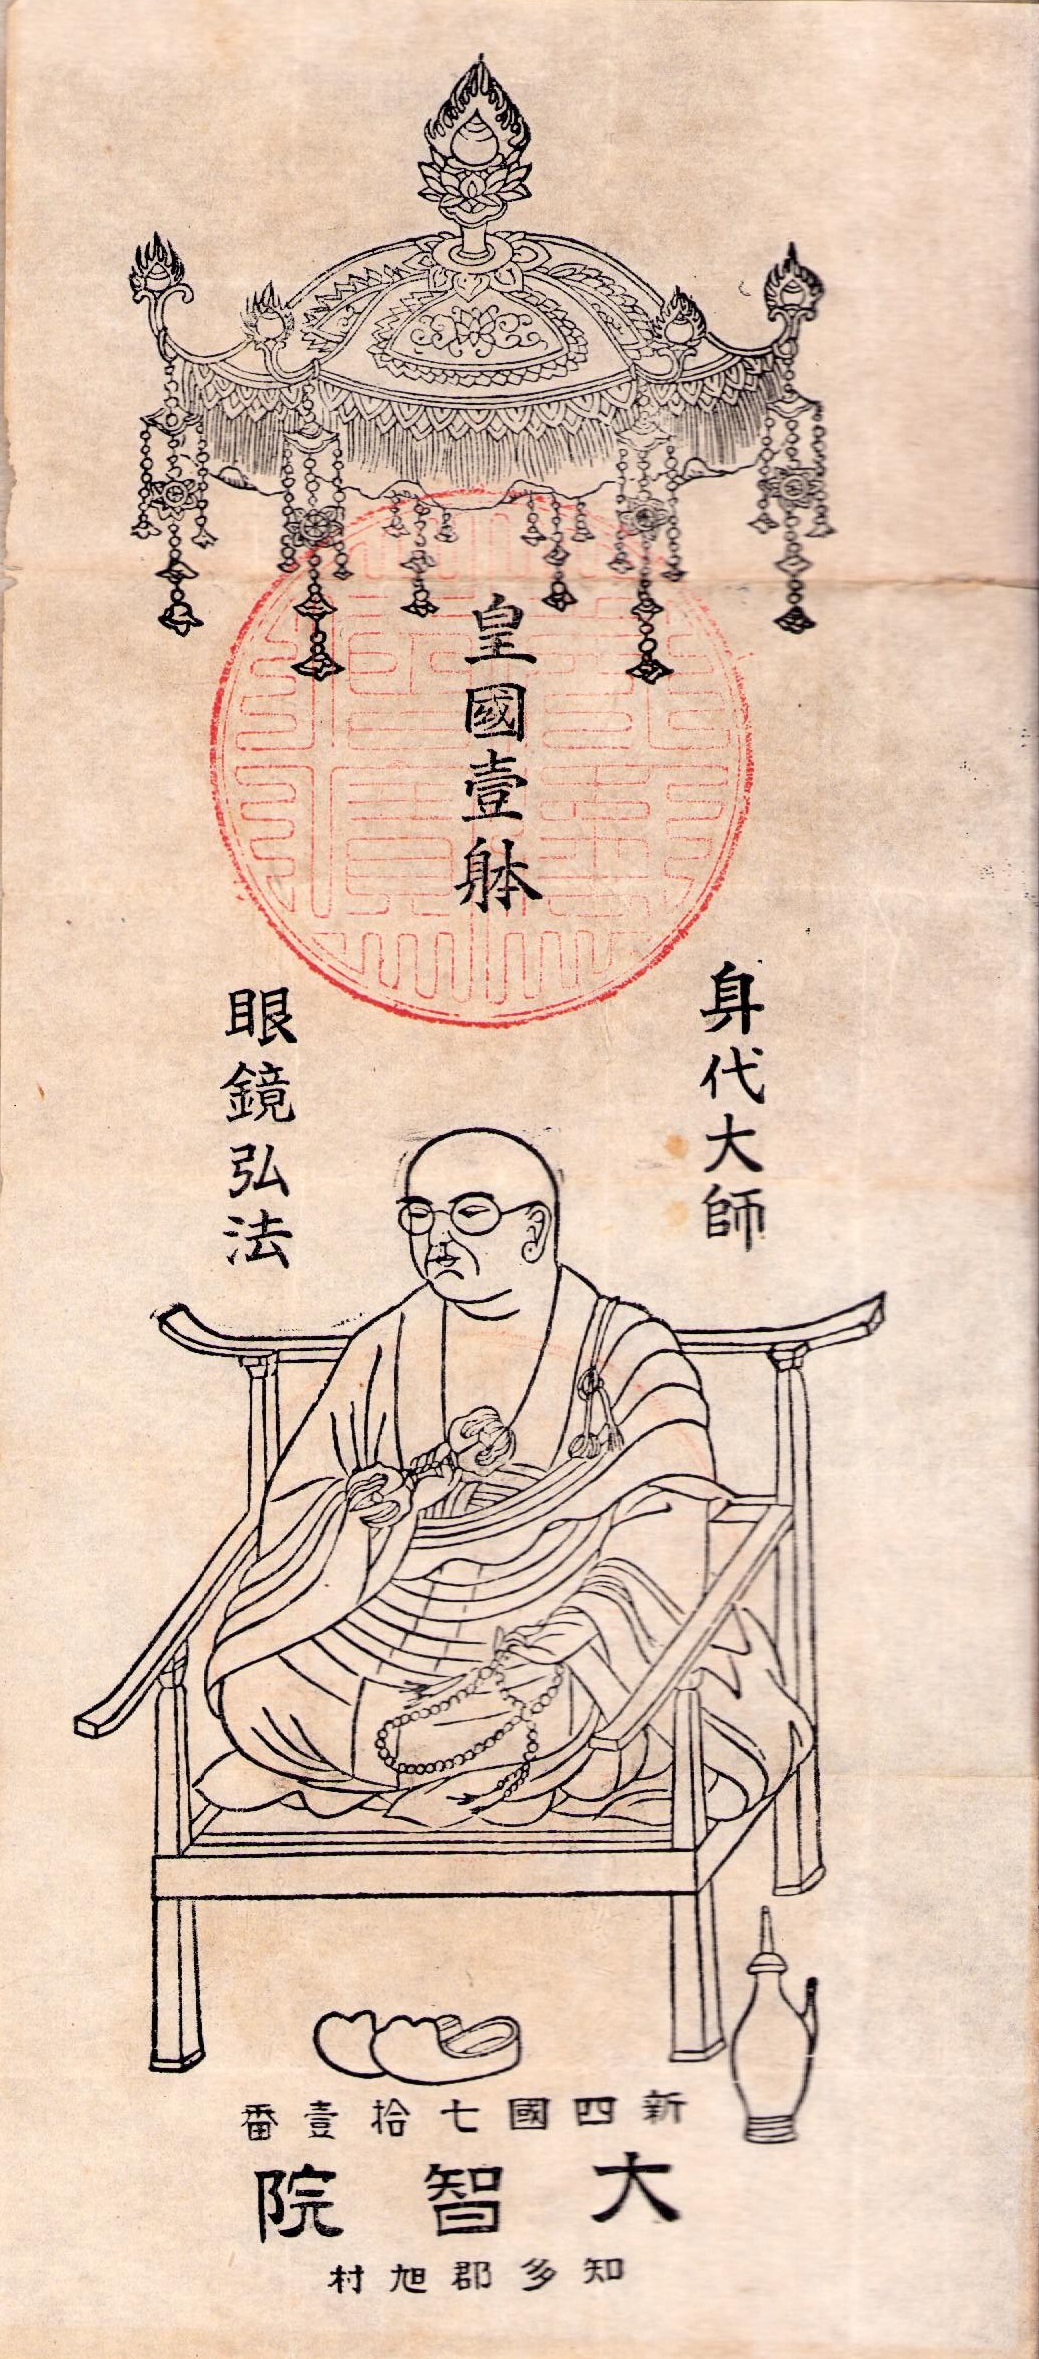 皇國壹躰
身代大師
眼鏡弘法
新四國七拾壹番
大智院
知多郡旭村